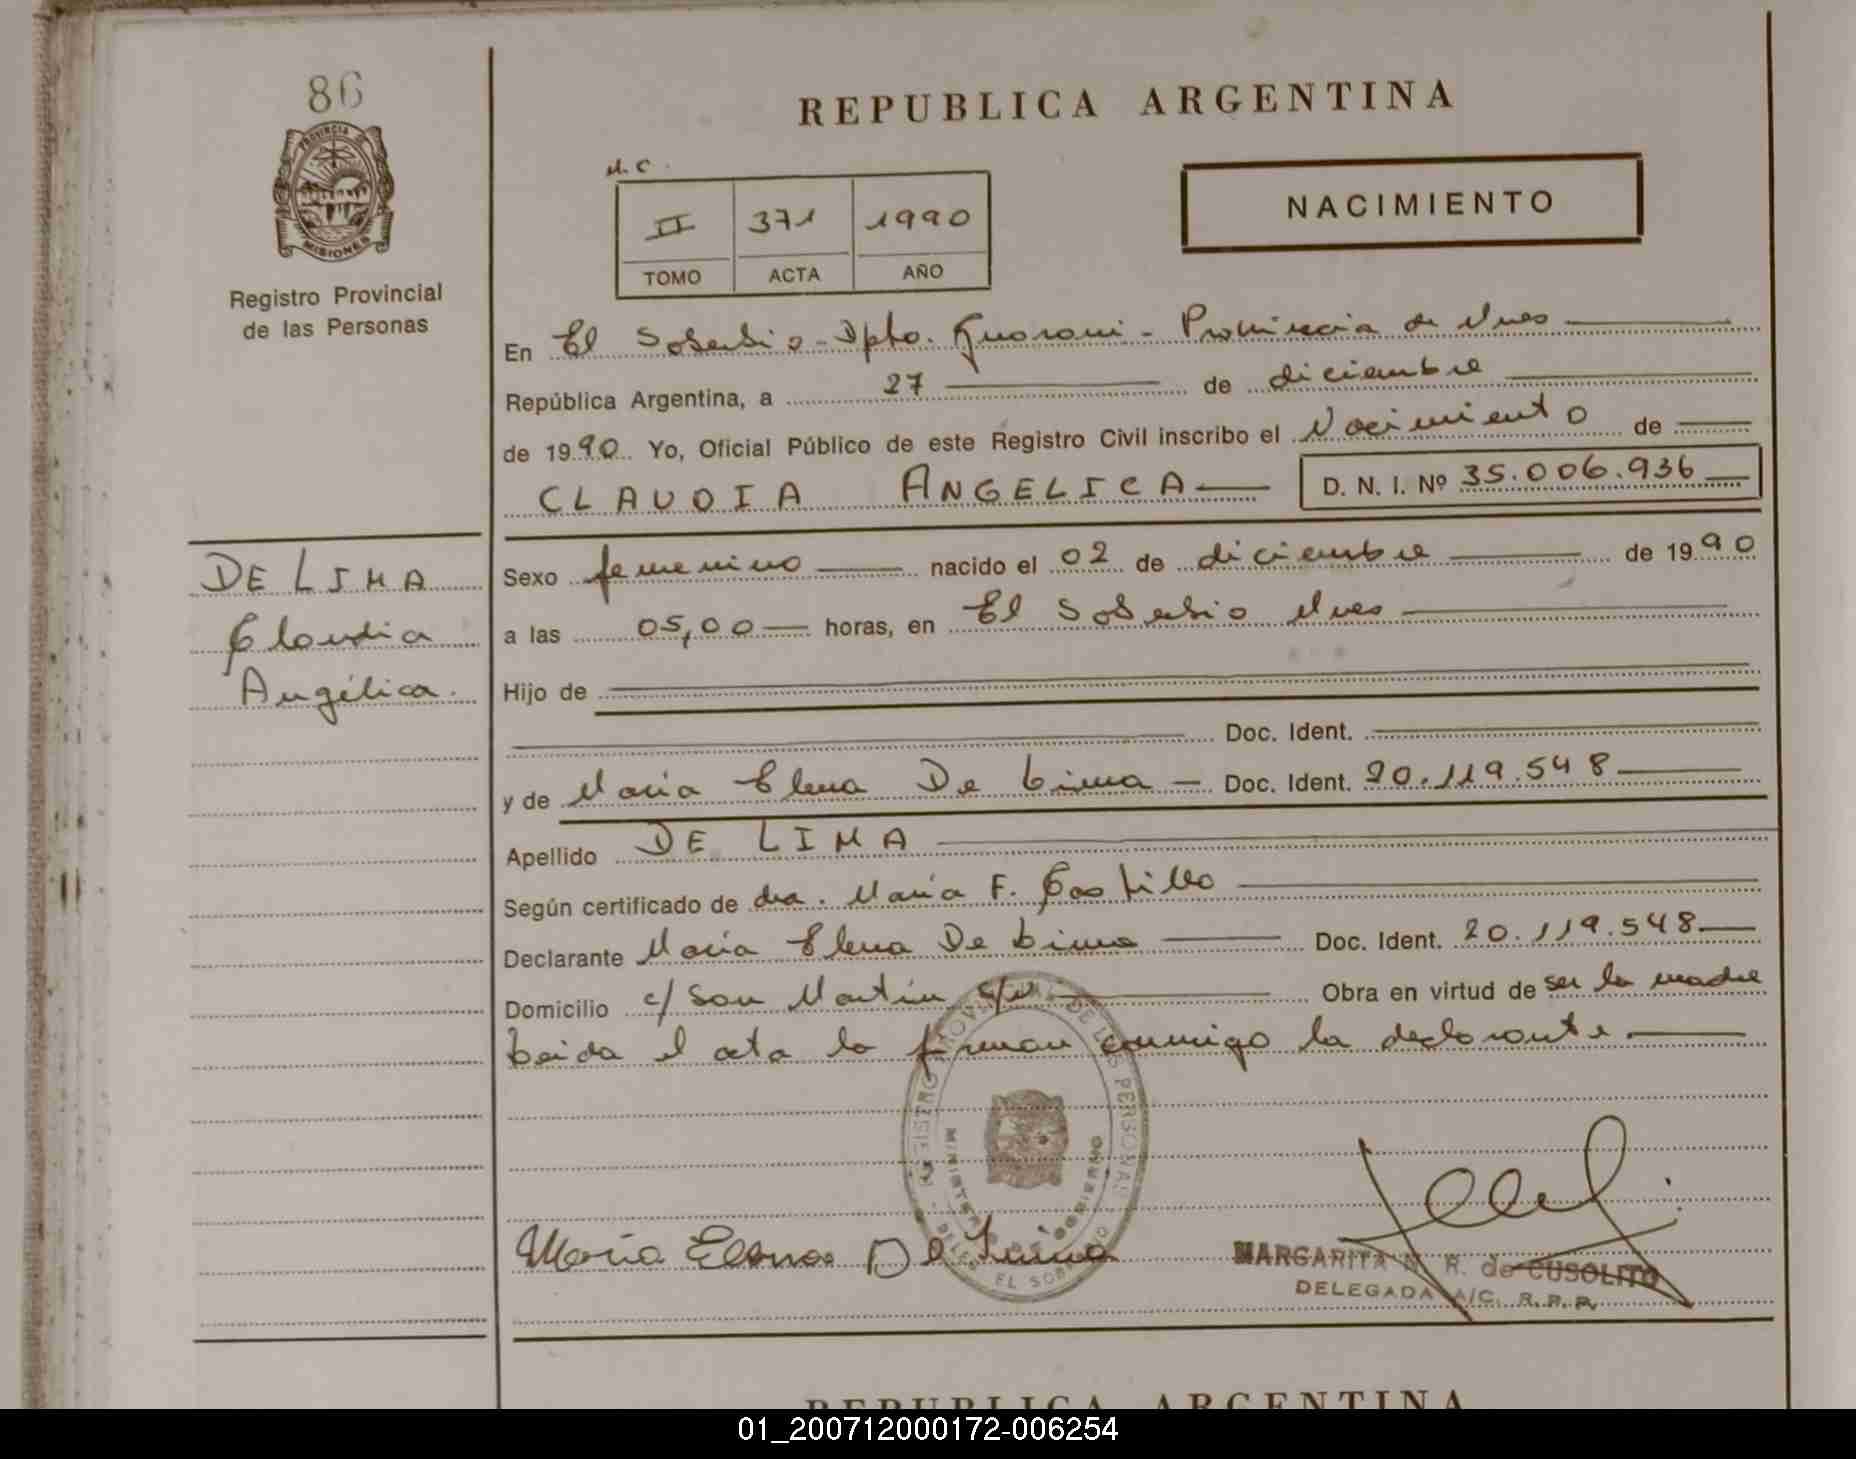 86
PROVINCIA
MISIONES
Registro Provincial
de las Personas
DE LIMA
Claudia
Angélica.
REPUBLICA ARGENTINA
M.C.
II 371 1990
TOMO ACTA AÑO
NACIMIENTO
En El Soberbio - Dpto. Guarani - Provincia de Mnes
República Argentina, a 27 de diciembre
de 1990. Yo, Oficial Público de este Registro Civil inscribo el Nacimiento de
CLAUDIA ANGELICA D. N. I. Nº 35.006.936
Sexo femenino nacido el 02 de diciembre de 1990
a las 05,00 horas, en El Soberbio Mnes
Hijo de
Doc. Ident.
y de Maria Elena De Lima Doc. Ident. 20.119.548
Apellido DE LIMA
Según certificado de dra. Maria F. Castillo
Declarante Maria Elena De Lima Doc. Ident. 20.119.548
Domicilio c/ San Martin s/n Obra en virtud de ser la madre
Leida el acta la firman conmigo la declarante
REGISTRO PROVINCIAL DE LAS PERSONAS
MINISTERIO DE GOBIERNO
DELEG. EL SOBERBIO
Maria Elena De Lima
MARGARITA N. R. de CUSOLITO
DELEGADA A/C. R.P.P.
REPUBLICA ARGENTINA
01_200712000172-006254